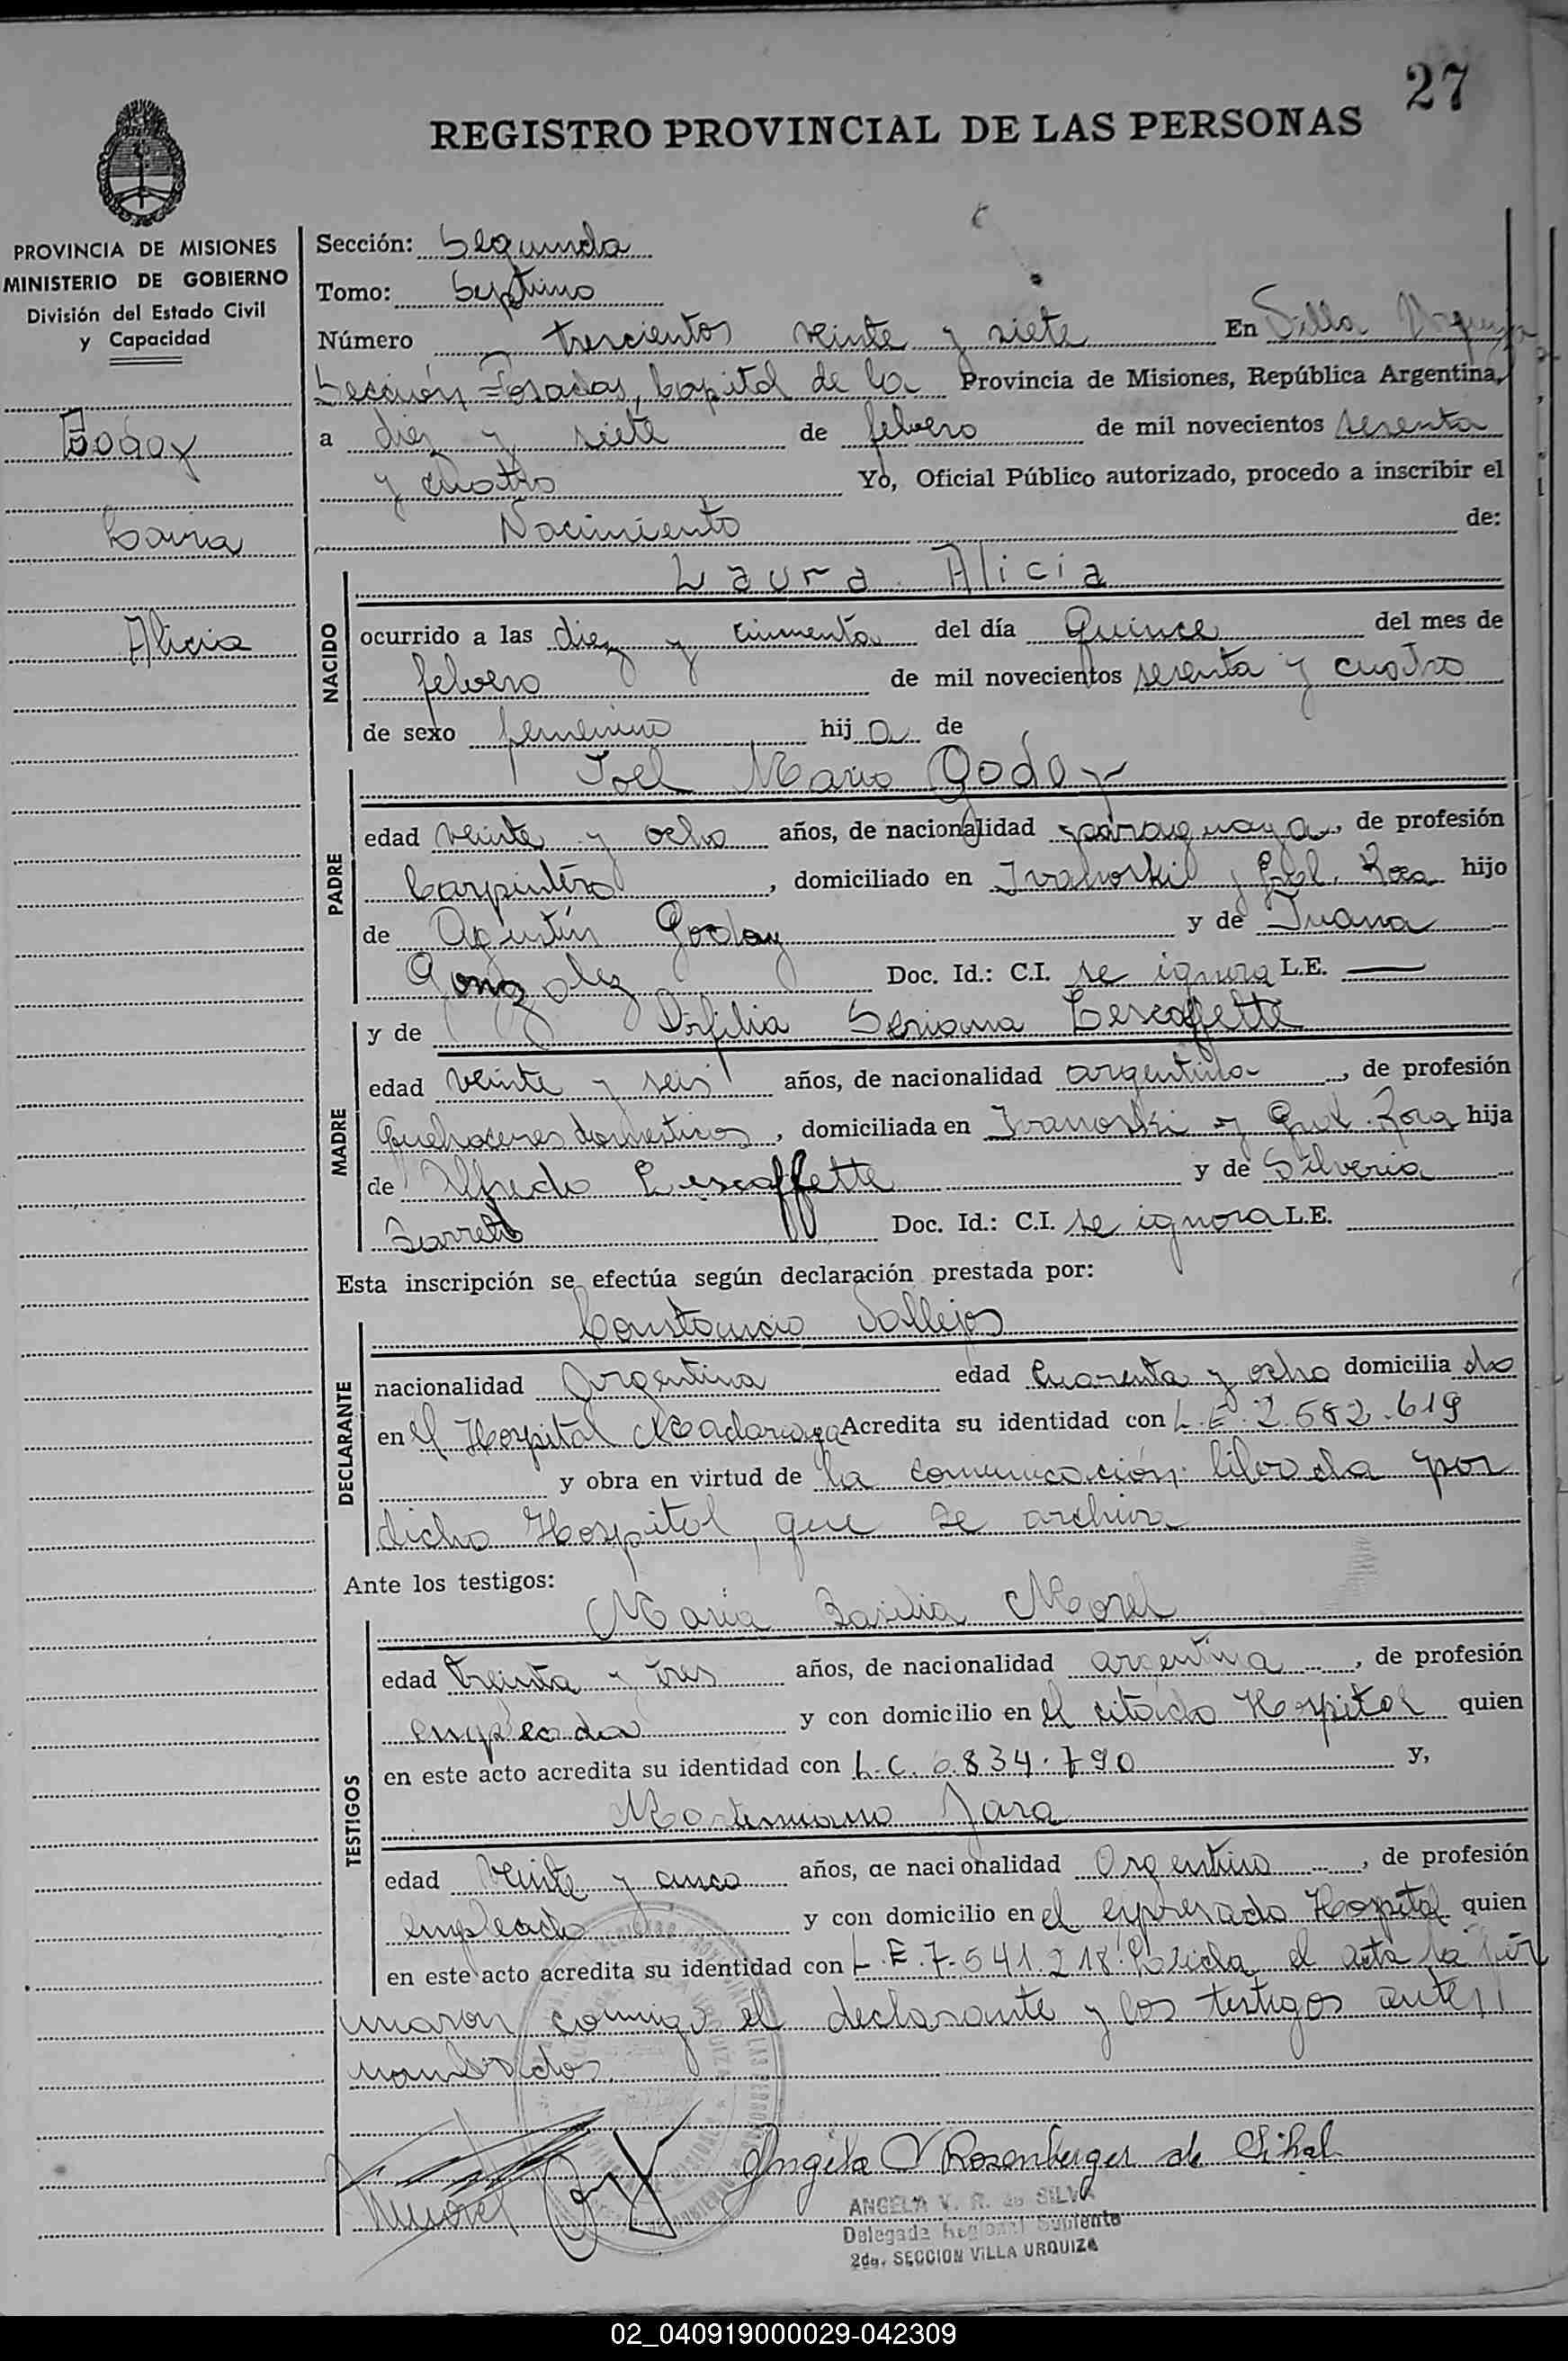 27
REGISTRO PROVINCIAL DE LAS PERSONAS
PROVINCIA DE MISIONES
MINISTERIO DE GOBIERNO
División del Estado Civil
y Capacidad
Godoy
Laura
Alicia
Sección: Segunda
Tomo: Septimo
Número trescientos veinte y siete En Villa Urquiza
Sección Posadas, Capital de la Provincia de Misiones, República Argentina,
a diez y siete de febrero de mil novecientos sesenta
y cuatro Yo, Oficial Público autorizado, procedo a inscribir el
Nacimiento de:
NACIDO
Laura Alicia
ocurrido a las diez y cincuenta del día Quince del mes de
febrero de mil novecientos sesenta y cuatro
de sexo femenino hija de
PADRE
Joel Mario Godoy
edad veinte y ocho años, de nacionalidad paraguaya, de profesión
Carpintero, domiciliado en Ivanoski y Gral. Roca hijo
de Agustín Godoy y de Juana
Gonzalez Doc. Id.: C.I. se ignora L.E. —
MADRE
y de Orfilia Seriana Lescaffette
edad veinte y seis años, de nacionalidad argentina, de profesión
Quehaceres domesticos, domiciliada en Ivanoski y Gral. Roca hija
de Alfredo Lescaffette y de Silveria
Barreto Doc. Id.: C.I. se ignora L.E.
Esta inscripción se efectúa según declaración prestada por:
DECLARANTE
Constancio Vallejos
nacionalidad Argentina edad Cuarenta y ocho domiciliado
en el Hospital Madariaga Acredita su identidad con L.E. 2.582.619
y obra en virtud de la comunicación librada por
dicho Hospital, que se archiva
Ante los testigos:
TESTIGOS
María Basilia Morel
edad treinta y tres años, de nacionalidad argentina, de profesión
empleada y con domicilio en el citado Hospital quien
en este acto acredita su identidad con L.C. 6.834.790 y,
Martiniano Jara
edad veinte y cinco años, de nacionalidad Argentina, de profesión
empleado y con domicilio en el expresado Hospital quien
en este acto acredita su identidad con L.E. 7.541.218. Leida el acta la fir
maron conmigo el declarante y los testigos antes
nombrados.
Angela V Rosenberger de Silva
ANGELA V. R. de SILVA
Delegada Regional Suplente
2da. SECCION VILLA URQUIZA
02_040919000029-042309